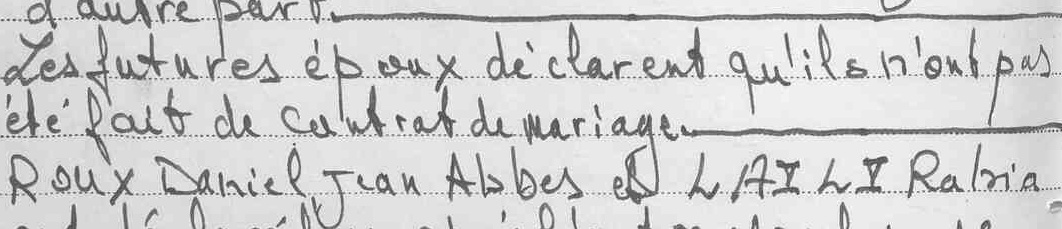 d'autre part.
Les futures époux déclarent qu'ils n'ont pas
été fait de contrat de mariage.
Roux Daniel Jean Abbes et LAILI Rabia